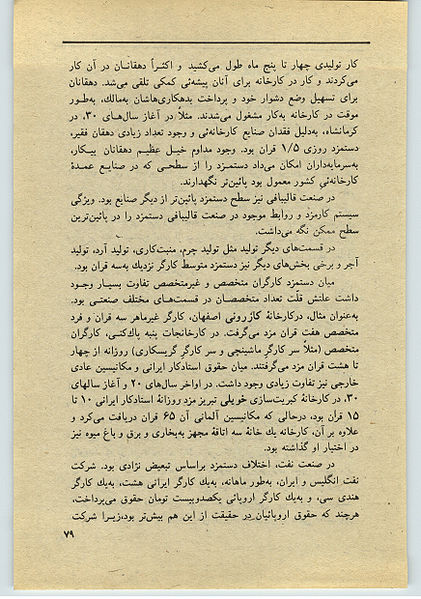 کار تولیدی چهار تا پنج ماه طول می‌کشید و اکثراً دهقانان در آن کار
می‌کردند و کار در کارخانه برای آنان پیشه‌ئی کمکی تلقی می‌شد. دهقانان
برای تسهیل وضع دشوار خود و پرداخت بدهکاری‌هاشان به‌مالك، به‌طور
موقت در کارخانه به‌کار مشغول می‌شدند. مثلاً در آغاز سال‌های ۳۰، در
کرمانشاه، به‌دلیل فقدان صنایع کارخانه‌ئی و وجود تعداد زیادی دهقان فقیر،
دستمزد روزی ۱/۵ قران بود. وجود مداوم خیل عظیم دهقانان بیکار،
به‌سرمایه‌داران امکان می‌داد دستمزد را از سطحی که در صنایع عمدهٔ
کارخانه‌ئی کشور معمول بود پائین‌تر نگهدارند.
در صنعت قالیبافی نیز سطح دستمزد پائین‌تر از دیگر صنایع بود. ویژگی
سیستم کارمزد و روابط موجود در صنعت قالیبافی دستمزد را در پائین‌ترین
سطح ممکن نگه می‌داشت.
در قسمت‌های دیگر تولید مثل تولید چرم، منبت‌کاری، تولید آرد، تولید
آجر و برخی بخش‌های دیگر نیز دستمزد متوسط کارگر نزدیك به‌سه قران بود.
میان دستمزد کارگران متخصص و غیرمتخصص تفاوت بسیار وجود
داشت علتش قلّت تعداد متخصصان در قسمت‌های مختلف صنعتی بود.
به‌عنوان مثال، درکارخانهٔ کازرونی اصفهان، کارگر غیرماهر سه قران و فرد
متخصص هفت قران مزد می‌گرفت. در کارخانجات پنبه پاك‌کنی، کارگران
متخصص (مثلاً سر کارگر ماشینچی و سر کارگر گریسکاری) روزانه از چهار
تا هشت قران مزد می‌گرفتند. میان حقوق استادکار ایرانی و مکانیسین عادی
خارجی نیز تفاوت زیادی وجود داشت. در اواخر سال‌های ۲۰ و آغاز سالهای
۳۰، در کارخانهٔ کبریت‌سازی خویلی تبریز مزد روزانهٔ استادکار ایرانی ۱۰ تا
۱۵ قران بود، درحالی که مکانیسین آلمانی آن ۶۵ قران دریافت می‌کرد و
علاوه بر آن، کارخانه یك خانهٔ سه اتاقهٔ مجهز به‌بخاری و برق و باغ میوه نیز
در اختیار او گذاشته بود.
در صنعت نفت، اختلاف دستمزد براساس تبعیض نژادی بود. شرکت
نفت انگلیس و ایران، به‌طور ماهانه، به‌یك کارگر ایرانی هشت، به‌یك کارگر
هندی سی، و به‌یك کارگر اروپائی یکصدوبیست تومان حقوق می‌پرداخت،
هرچند که حقوق اروپائیان در حقیقت از این هم بیش‌تر بود،زیرا شرکت
۷۹